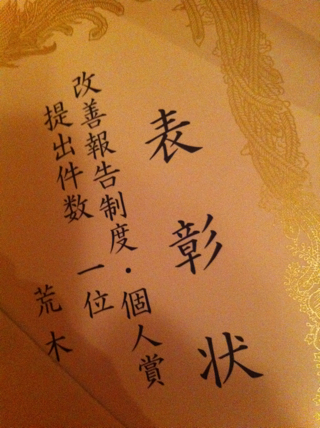 表彰状
改善報告制度・個人賞
提出件数 一位
荒木